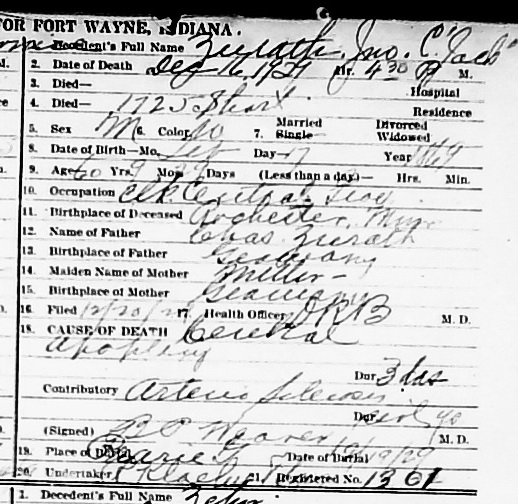 FOR FORT WAYNE, INDIANA.
1. Decedent's Full Name Zurath, Jno. C. "Jack"
2. Date of Death Dec 16, 1929 Hr. 4 30 P M.
3. Died— Hospital
4. Died— 1725 Short Residence
5. Sex M 6. Color W 7. Married Single— Divorced Widowed
8. Date of Birth—Mo. Day— 17 Year 1869
9. Age 60 Yrs. Mos. Days (Less than a day)— Hrs. Min.
10. Occupation Clk. Central
11. Birthplace of Deceased Rochester,
12. Name of Father Chas. Zurath
13. Birthplace of Father Germany
14. Maiden Name of Mother Miller—
15. Birthplace of Mother Germany
16. Filed 12/20/29 17. Health Officer M. D.
18. CAUSE OF DEATH Cerebral
Apoplexy
Dur 3 das
Contributory Arterio Sclerosis
Dur
(Signed) Weaver M. D.
19. Place of Date of Burial 12/19/29
20. Undertaker 21. Registered No. 1301
1. Decedent's Full Name